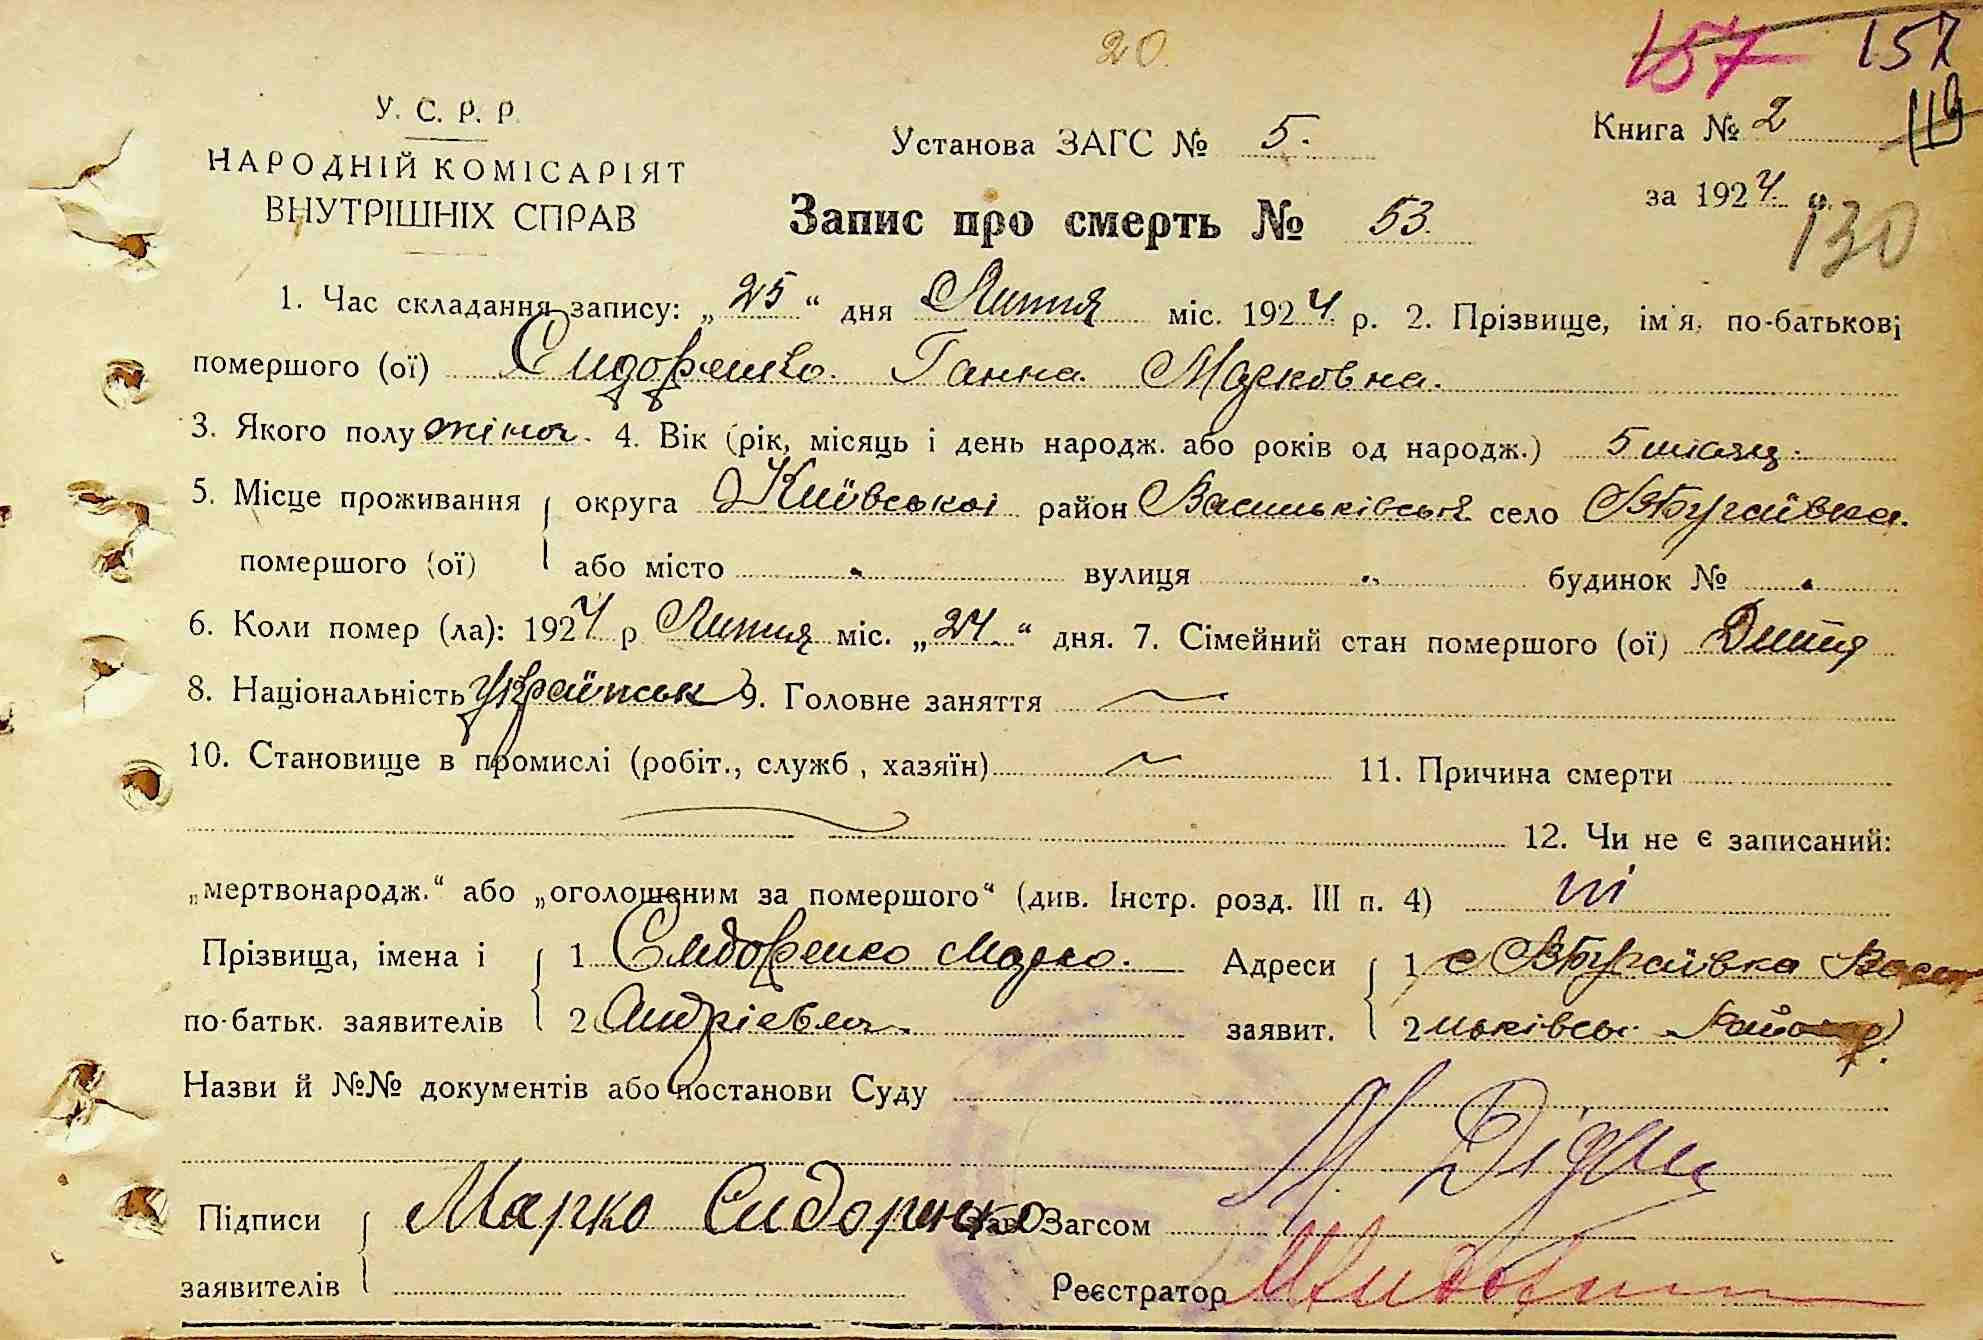 20.
157 157
У. С. Р. Р.
НАРОДНІЙ КОМІСАРІЯТ
ВНУТРІШНІХ СПРАВ
Установа ЗАГС № 5.
Книга № 2
119
за 1924 р.
130
Запис про смерть № 53.
1. Час складання запису: „25“ дня Липня міс. 1924 р. 2. Прізвище, ім'я, по-батькові
помершого (ої) Сидоренко Ганна Марковна.
3. Якого полу жіноч. 4. Вік (рік, місяць і день народж. або років од народж.) 5 місяц.
5. Місце проживання округа Київської район Васильківськ село В Бугаївка.
помершого (ої) або місто вулиця будинок №
6. Коли помер (ла): 1924 р Липня міс. „24“ дня. 7. Сімейний стан помершого (ої) Дитя
8. Національність Українськ 9. Головне заняття
10. Становище в промислі (робіт., служб, хазяїн) 11. Причина смерти
12. Чи не є записаний:
„мертвонародж.“ або „оголошеним за помершого“ (див. Інстр. розд. III п. 4) ні
Прізвища, імена і 1 Сидоренко Марко. Адреси 1 с В Бугаївка Васи
по-батьк. заявителів 2 Андрієвич. заявит. 2 льківськ. Району
Назви й №№ документів або постанови Суду
Підписи Марко Сидоренко Зав. Загсом
заявителів Реєстратор